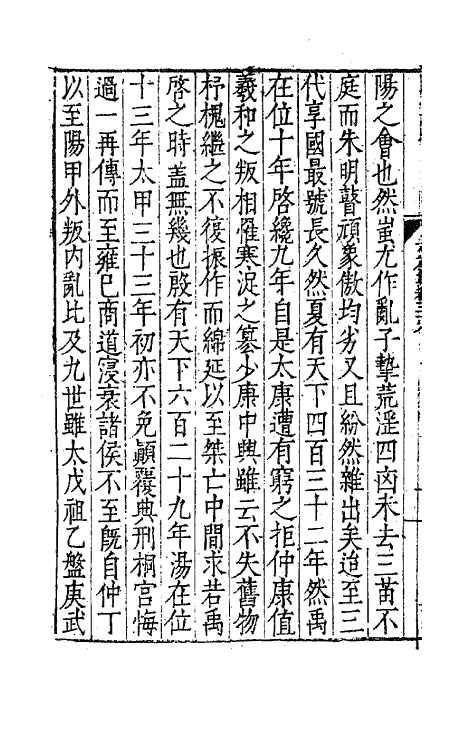 陽之會也然蚩尤作亂子摯荒淫四凶未去三苗不
庭而朱明瞽頑象傲均劣又且紛然雜出矣迨至三
代享國最號長久然夏有天下四百三十二年然禹
在位十年啓纔九年自是太康遭有窮之拒仲康值
羲和之叛相罹寒浞之簒少康中興雖云不失舊物
杼槐繼之不復振作而綿延以至桀亡中間求若禹
啓之時盖無幾也殷有天下六百二十九年湯在位
十三年太甲三十三年初亦不免顚覆典刑桐宮悔
過一再傳而至雍已商道寖衰諸侯不至旣自仲丁
以至陽甲外叛内亂比及九世雖太戊祖乙盤庚武